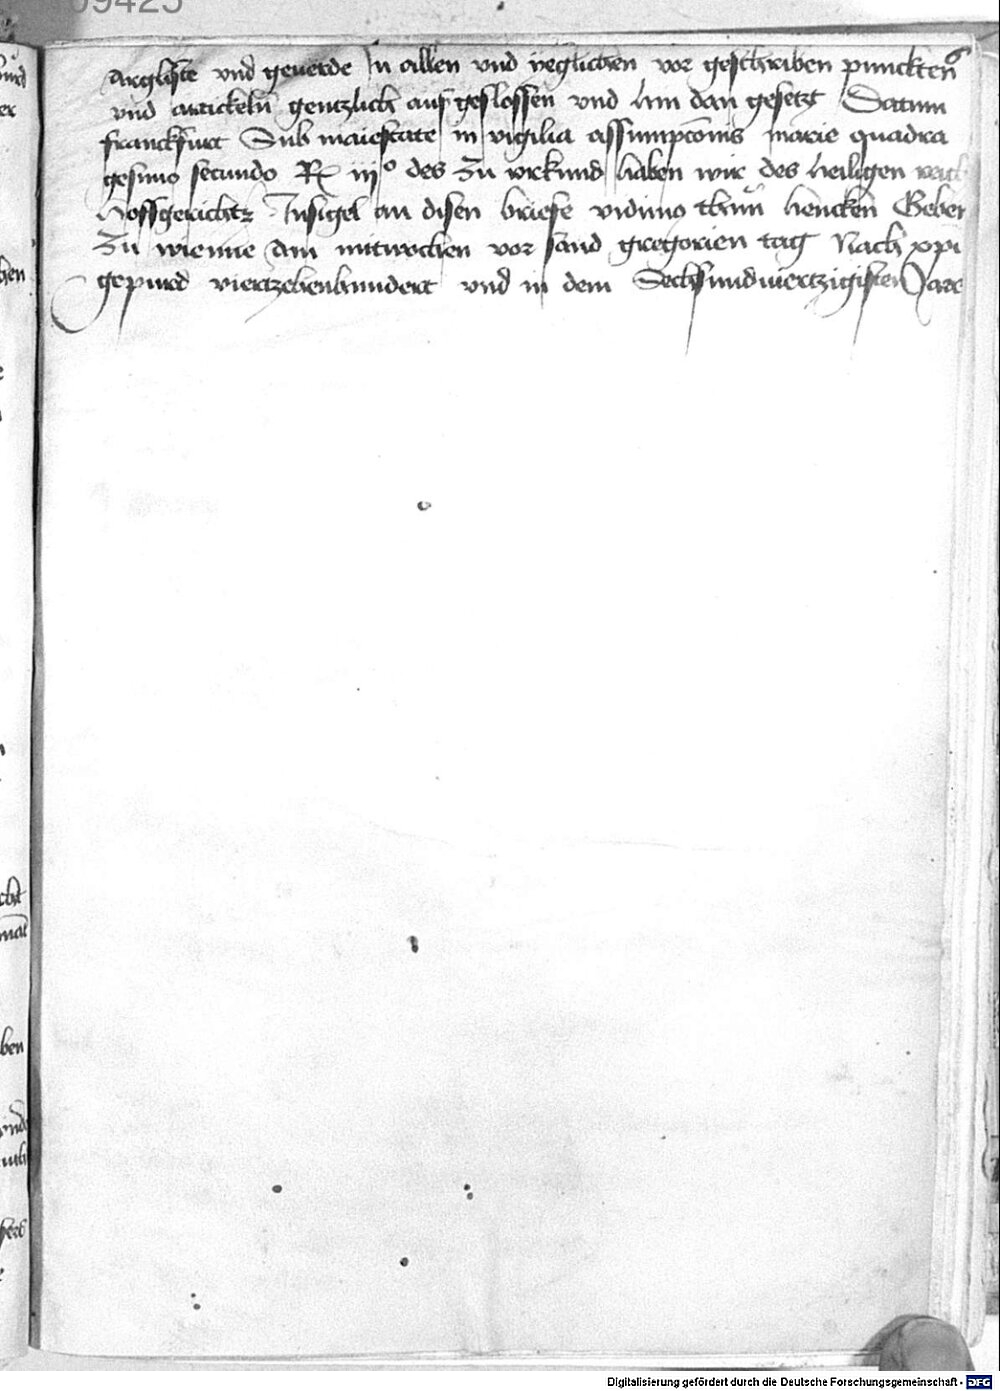 09425
Argliste vnd geuerde In allen vnd yeglichen vor geschriben punckten
vnd artickeln gentzlich aufgeslossen vnd hin dan gesetzt Datum
franckfurt Sub maiestate in vigilia assumpconis marie quadra
gesimo secundo R iijº des zu vrkund haben wir des heiligen reich
Hoffgerichtz Insigel an disen briefe vidimus thun hencken Geben
Zu wienne Am mitwochen vor sand gregorien tag Nach xpi
gepurd viertzehenhundert vnd in dem Sechsundviertzigisten Jare
Digitalisierung gefördert durch die Deutsche Forschungsgemeinschaft - DFG